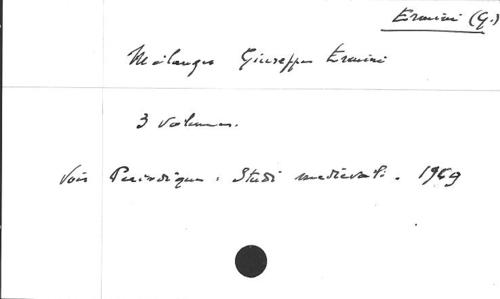 Ermini (G.)
Mélanges Giuseppe Ermini
3 volumes.
Voir Périodique : Studi medievali. 1969